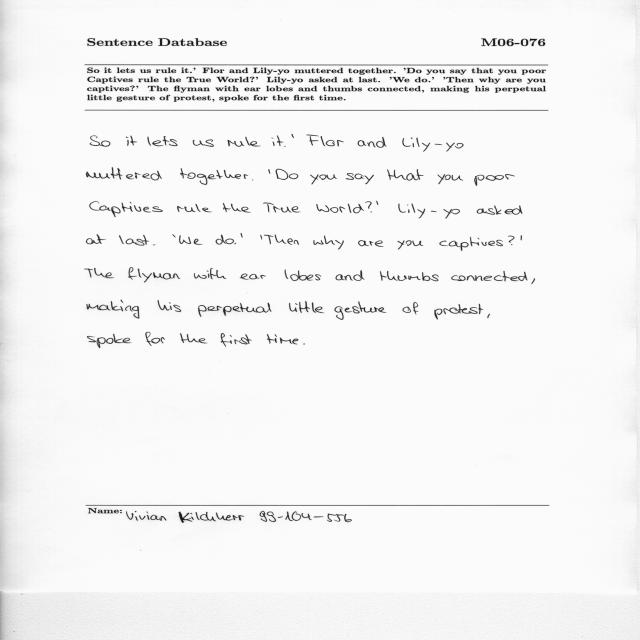 Sentence Database M06-076
So it lets us rule it.' Flor and Lily-yo muttered together. 'Do you say that you poor
Captives rule the True World?' Lily-yo asked at last. 'We do.' 'Then why are you
captives?' The flyman with ear lobes and thumbs connected, making his perpetual
little gesture of protest, spoke for the first time.
So it lets us rule it.' Flor and Lily-yo
muttered together. 'Do you say that you poor
Captives rule the True World?' Lily-yo asked
at last. 'We do.' 'Then why are you captives?'
The flyman with ear lobes and thumbs connected,
making his perpetual little gesture of protest,
spoke for the first time.
Name: Vivian Kilchherr 99-104-556